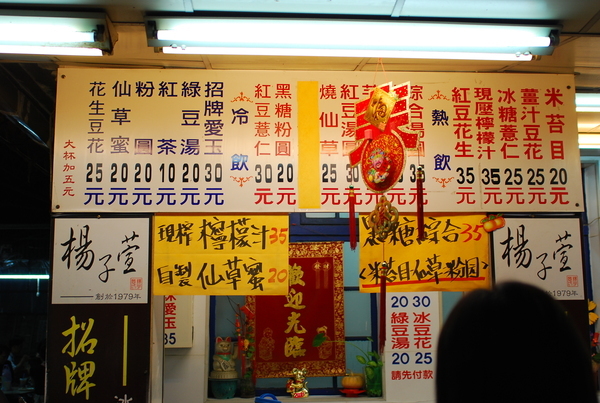 米苔目 20元
薑汁豆花 25元
冰糖薏仁 25元
現壓檸檬汁 35元
紅豆花生 35元
熱飲
綜合湯 35元
紅豆湯 30元
燒仙草 25元
黑糖粉圓 20元
紅豆薏仁 30元
冷飲
招牌愛玉 30元
綠豆湯 20元
紅茶 10元
粉圓 20元
仙草蜜 20元
花生豆花 25元
大杯加五元
楊子萱
創始1979年
現榨檸檬汁35
自製仙草蜜20
黑糖綜合35
米苔目仙草粉圓
楊子萱
創始1979年
招牌
冰
愛玉
35
歡迎光臨
20 30
綠豆湯 冰豆花
20 25
請先付款